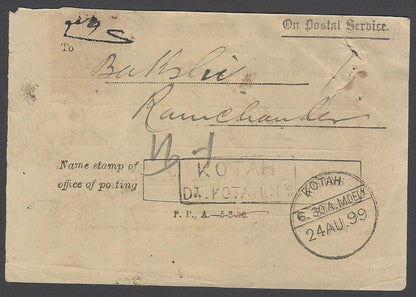 On Postal Service.
To
Bakshi
Ramchander
Name stamp of
office of posting
KOTAH
KOTAH
6.30.A.M.DELY.
24 AU. 99
P. P., A.—5-3-96.